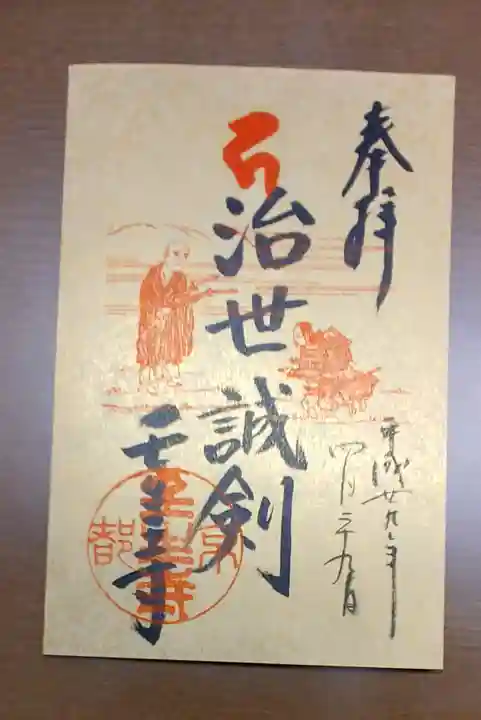 奉拝
平成廿九年
四月二十九日
治世誠剣
壬生寺
京都
壬生寺